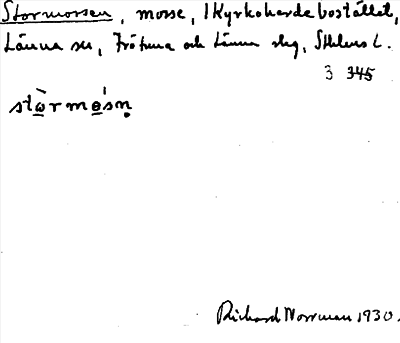 Stormossen, mosse, 1 Kyrkoherdebostället,
Länna sn, Frötuna och Länna slg, Sthlms l.
3 345
stòrmósn̥
Richard Norrman 1930.